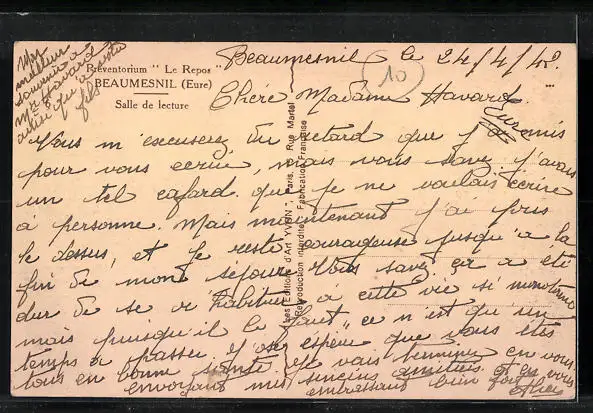 Mes
meilleur
souvenir à
Mr Havard
ainsi qu'à votre
fils
Préventorium " Le Repos "
BEAUMESNIL (Eure)
Salle de lecture
Beaumesnil le 24/4/42
10
Chère Madame Havard
Eure
Vous m'excuserez du retard que j'ai mis
pour vous écrire, mais vous savez j'avais
un tel cafard que je ne voulais écrire
à personne. Mais maintenant j'ai pris
le dessus, et je reste courageuse jusqu'à la
fin de mont séjour. Vous savez ça a été
dur de se r'habituer à cette vie si monotone
mais puisqu'il le faut, ce n'est qu'un
temps à passer. J'ose espérer que vous êtes
tous en bonne santé. Je vais terminer en vous
envoyant mes sincères amitiés et en vous
embrassant bien fort
Les Editions d'Art YVON", Paris, Rue Martel
Reproduction interdite - Fabrication Française